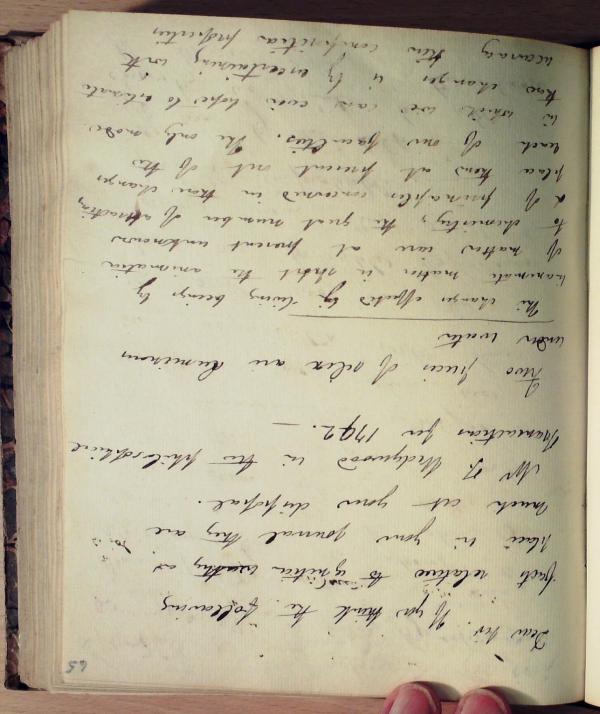 65
Dear Sir. If you think the following
facts relative to ignition worthy a
place in your Journal they are
much at your disposal.
Mr T. Wedgwood in the philosophical
Transactions for 1792. —
Two pieces of silex are luminous
under water
The changes effected by living beings by
inanimate matter in short the animation
of matter are at present unknown
to chemistry, the great number of attraction
& of principles concerned in these changes
place them at present out of the
reach of our faculties. The only mode
in which we can ever hope to estimate
these changes is by ascertaining with
accuracy their composition properties